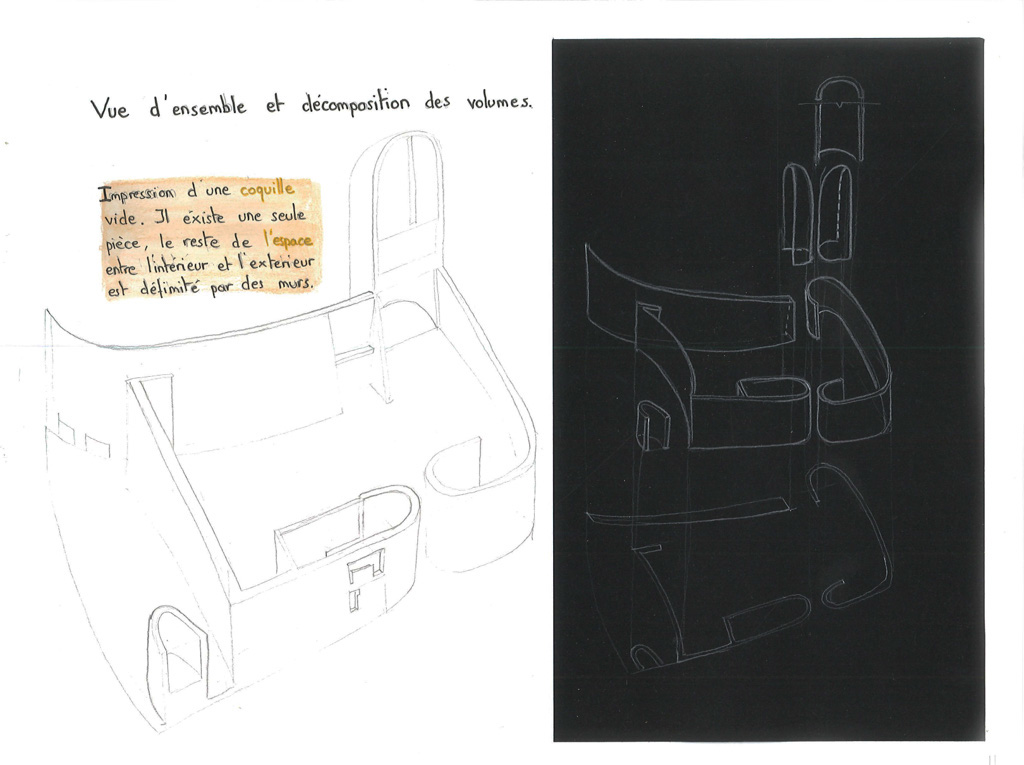 Vue d'ensemble et décomposition des volumes.
Impression d'une coquille
vide. Il éxiste une seule
pièce, le reste de l'espace
entre l'intérieur et l'exterieur
est définité par des murs.
11